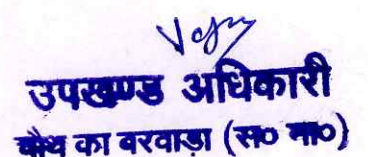 उपखण्ड अधिकारी
चौथ का बरवाडा (स० मा०)